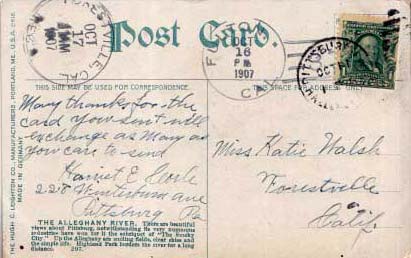 Post Card.
FORESTVILLE, CAL.
OCT
17
AM
1907
FULTON
OCT
16
PM
1907
CAL.
PITTSBURG
OCT
THIS SIDE MAY BE USED FOR CORRESPONDENCE.
THIS SPACE IS FOR ADDRESS ONLY.
Many thanks for the
card you sent will
exchange as many as
you care to send
Harriet E
228 ave
Pittsburg Pa
Miss Katie Walsh
Forestville
Calif.
THE ALLEGHENY RIVER. There are beautiful
views about Pittsburg, notwithstanding its very numerous
industries have won for it the sobriquet of "The Smoky
City." Up the Allegheny are smiling fields, clear skies and
the simple life. Highland Park borders the river for a long
distance. 297.
THE HUGH C. LEIGHTON CO., MANUFACTURERS, PORTLAND, ME., U.S.A.
MADE IN GERMANY